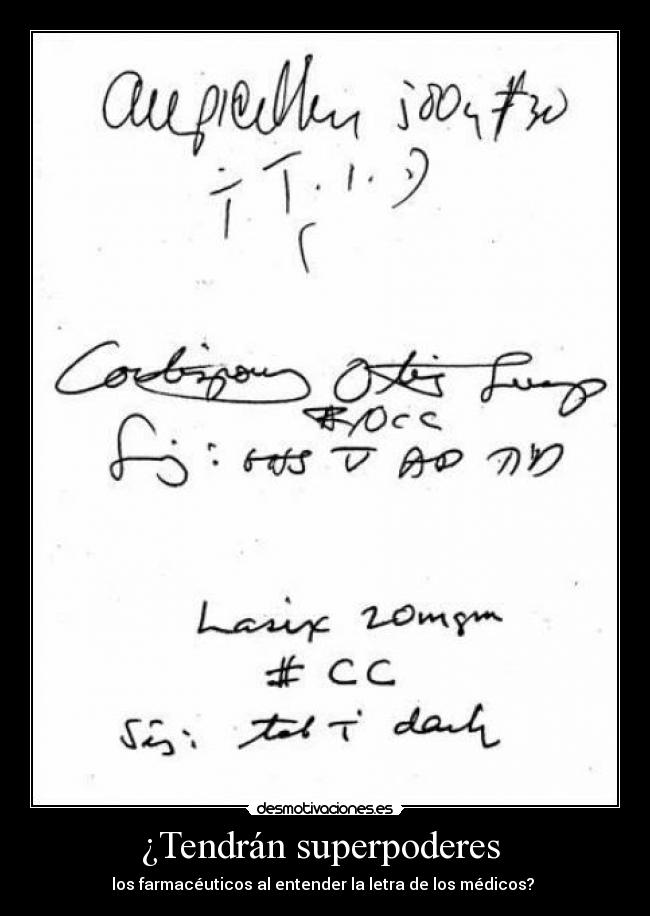 Ampicillin 500 #30
T. i. d
Cortisporin Otic Susp
#10cc
Sig: gtts V AD
Lasix 20mgm
# CC
Sig: tab T daily
desmotivaciones.es
¿Tendrán superpoderes
los farmacéuticos al entender la letra de los médicos?